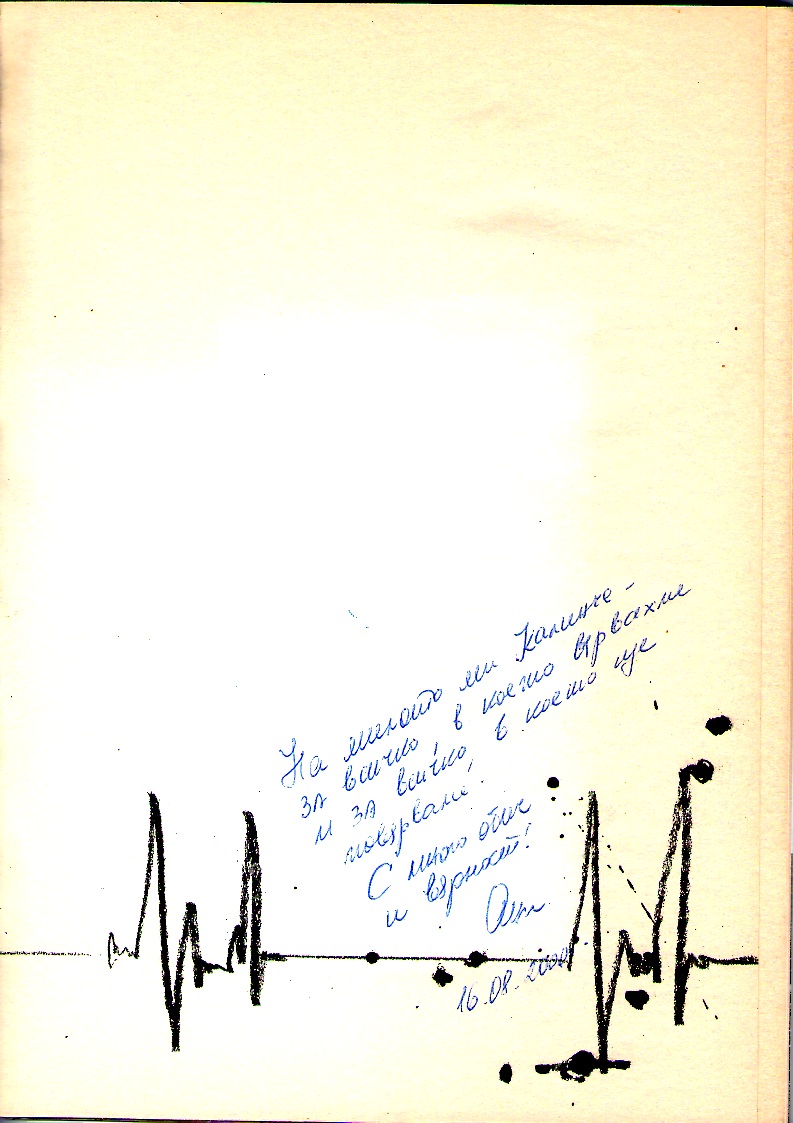 На милото ми Калинче -
за всичко, в което вярвахме
и за всичко, в което ще
повярваме,
С много обич
и вярност!
16.08.2000